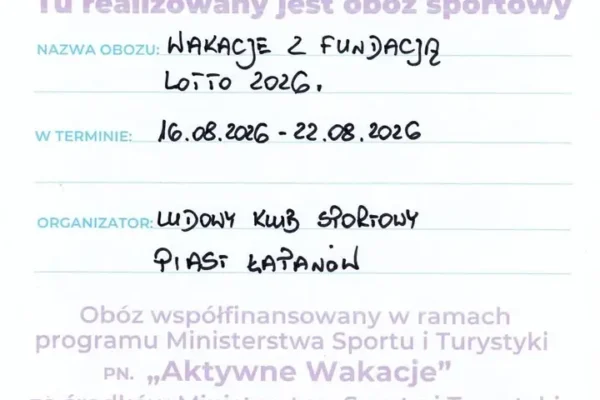 Tu realizowany jest obóz sportowy
NAZWA OBOZU: WAKACJE Z FUNDACJĄ
LOTTO 2026.
W TERMINIE: 16.08.2026 - 22.08.2026
ORGANIZATOR: LUDOWY KLUB SPORTOWY
PIAST ŁAPANÓW
Obóz współfinansowany w ramach
programu Ministerstwa Sportu i Turystyki
PN. „Aktywne Wakacje”
ze środków Ministerstwa Sportu i Turystyki